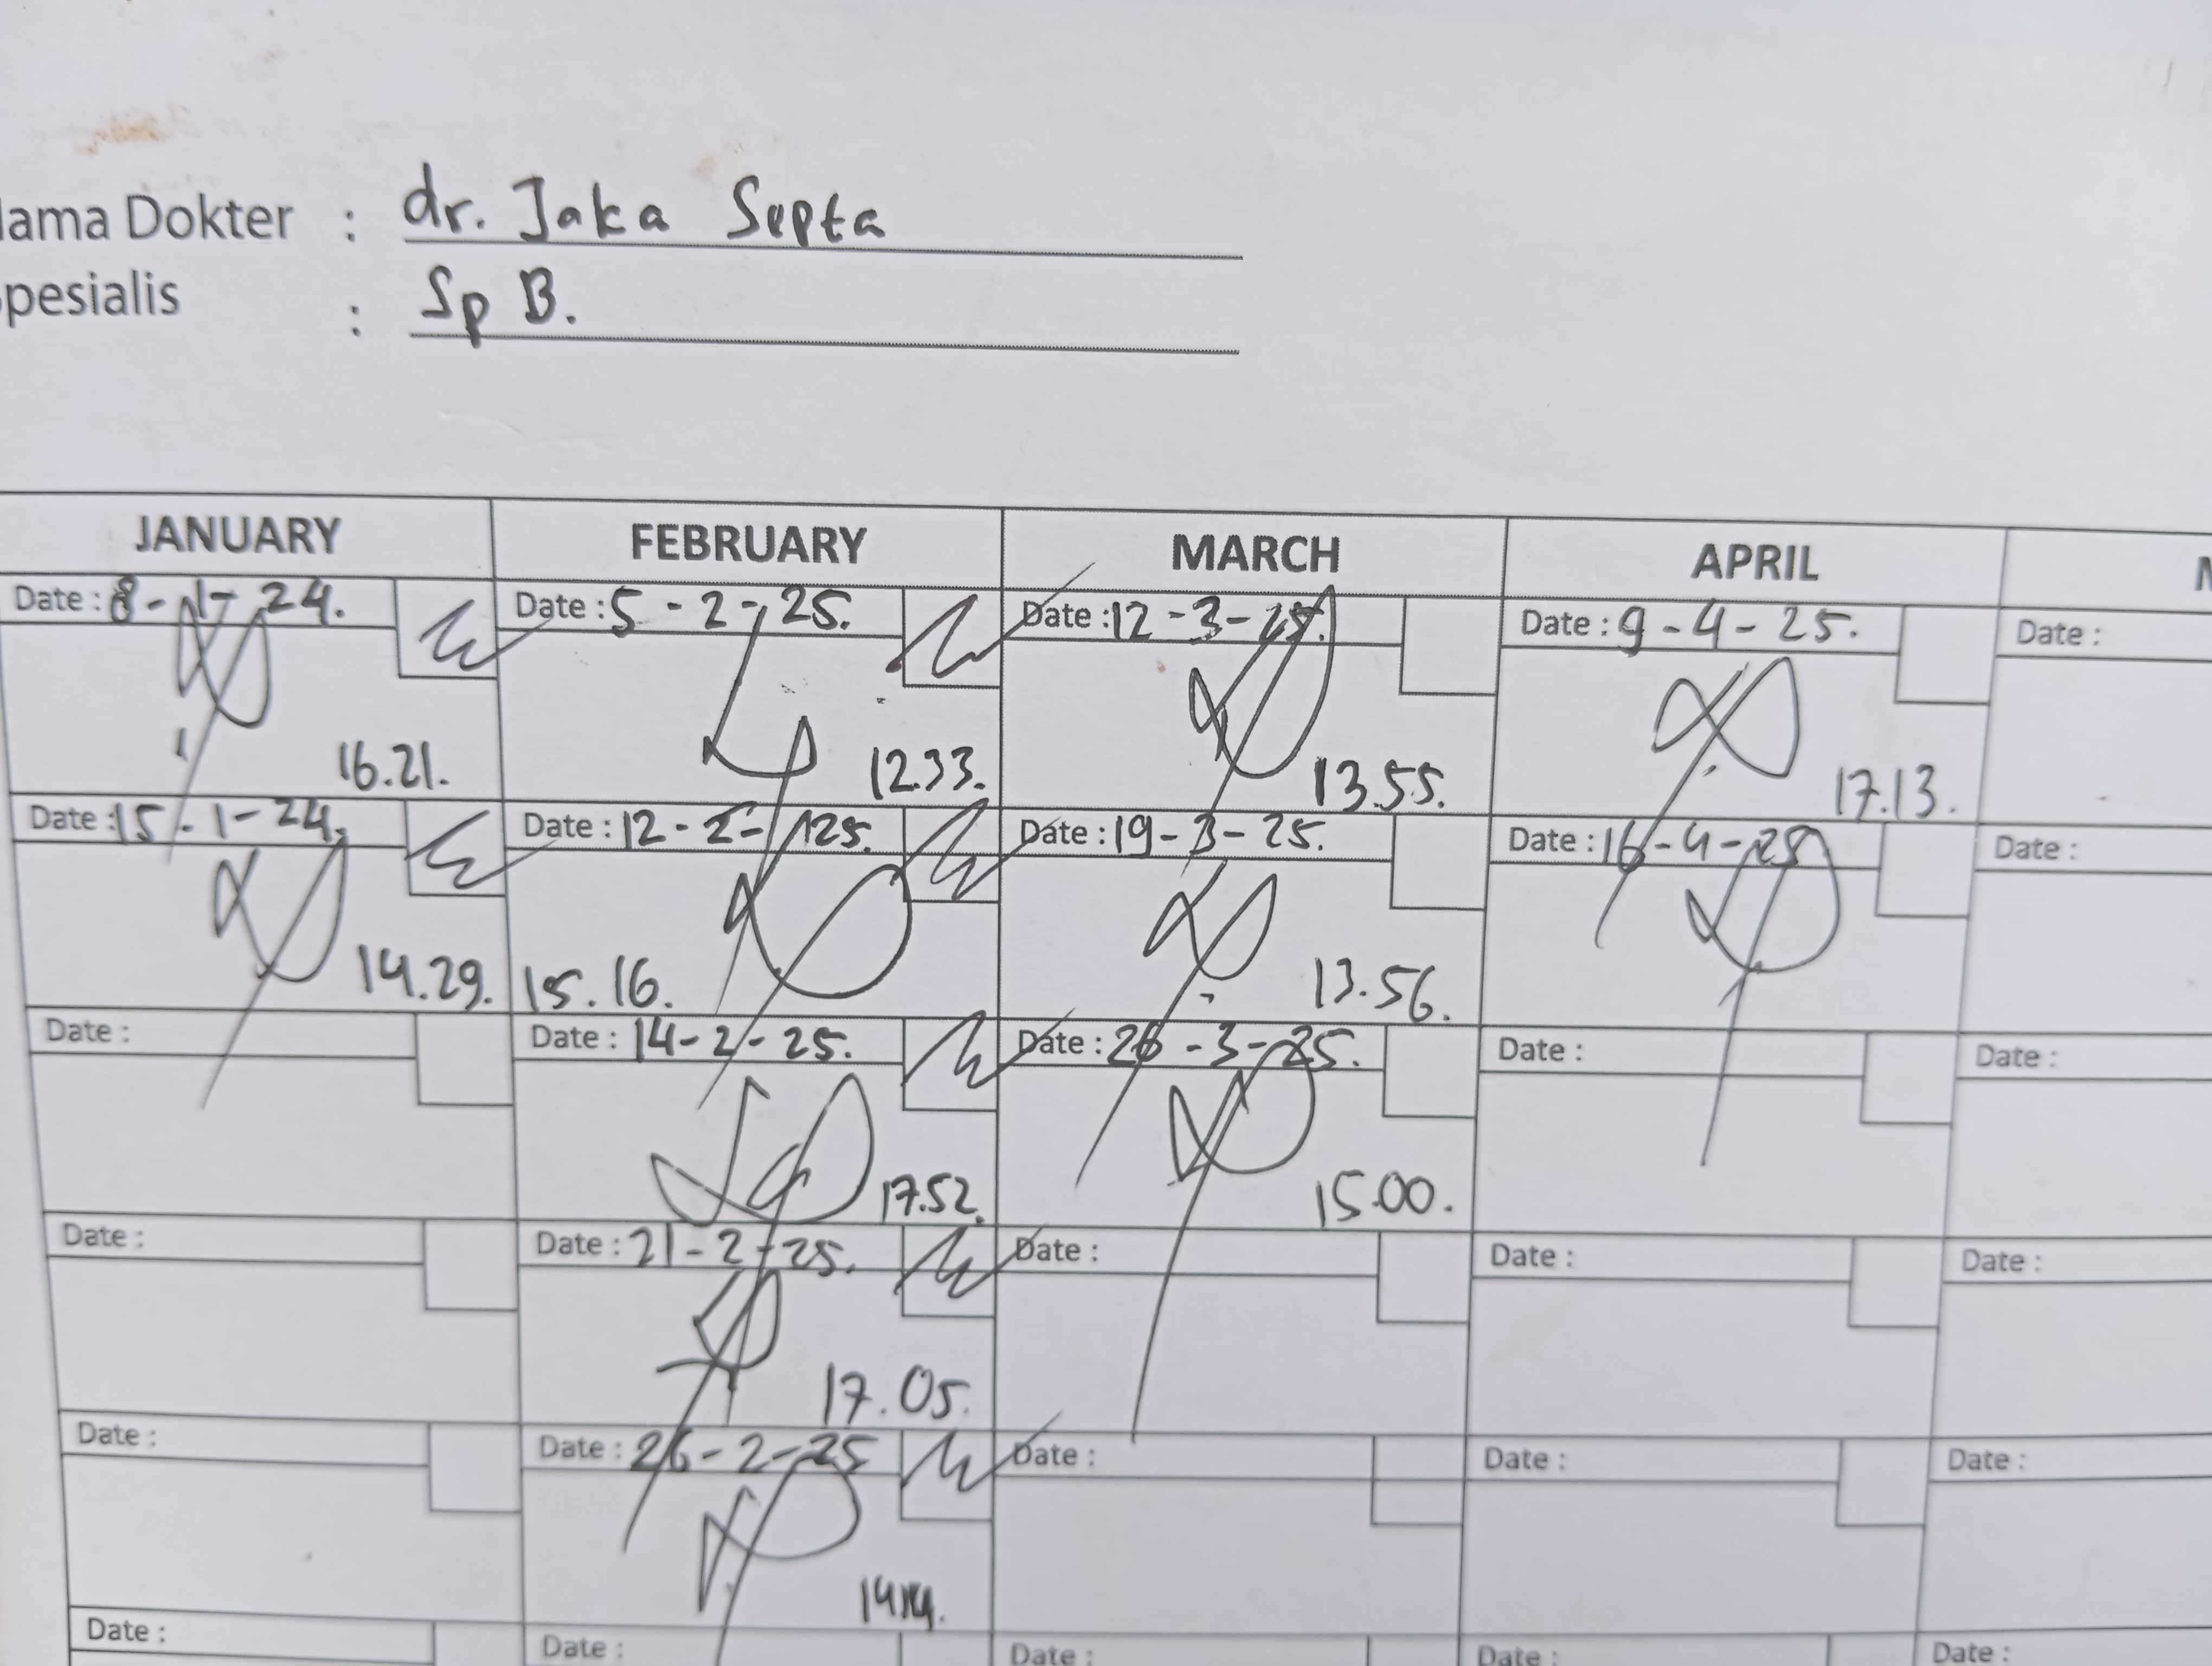 lama Dokter : dr. Jaka Septa
pesialis : Sp B.
JANUARY FEBRUARY MARCH APRIL
Date : 8-1-24. Date : 5-2-25. Date : 12-3-25. Date : 9-4-25. Date :
16.21. 12.33. 13.55. 17.13.
Date : 15-1-24. Date : 12-2-25. Date : 19-3-25. Date : 16-4-25 Date :
14.29. 15.16. 13.56.
Date : Date : 14-2-25. Date : 26-3-25. Date : Date :
17.52. 15.00.
Date : Date : 21-2-25. Date : Date : Date :
17.05.
Date : Date : 26-2-25 Date : Date : Date :
Date : Date : Date : Date : Date :